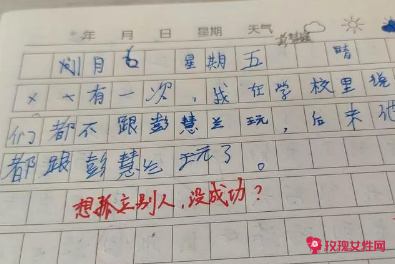 年 月 日 星期 天气
月 星期五 晴
××有一次，我在学校里说
们都不跟彭慧兰玩，后来他
都跟彭慧兰玩了。
想孤立别人，没成功？
玫瑰女性网